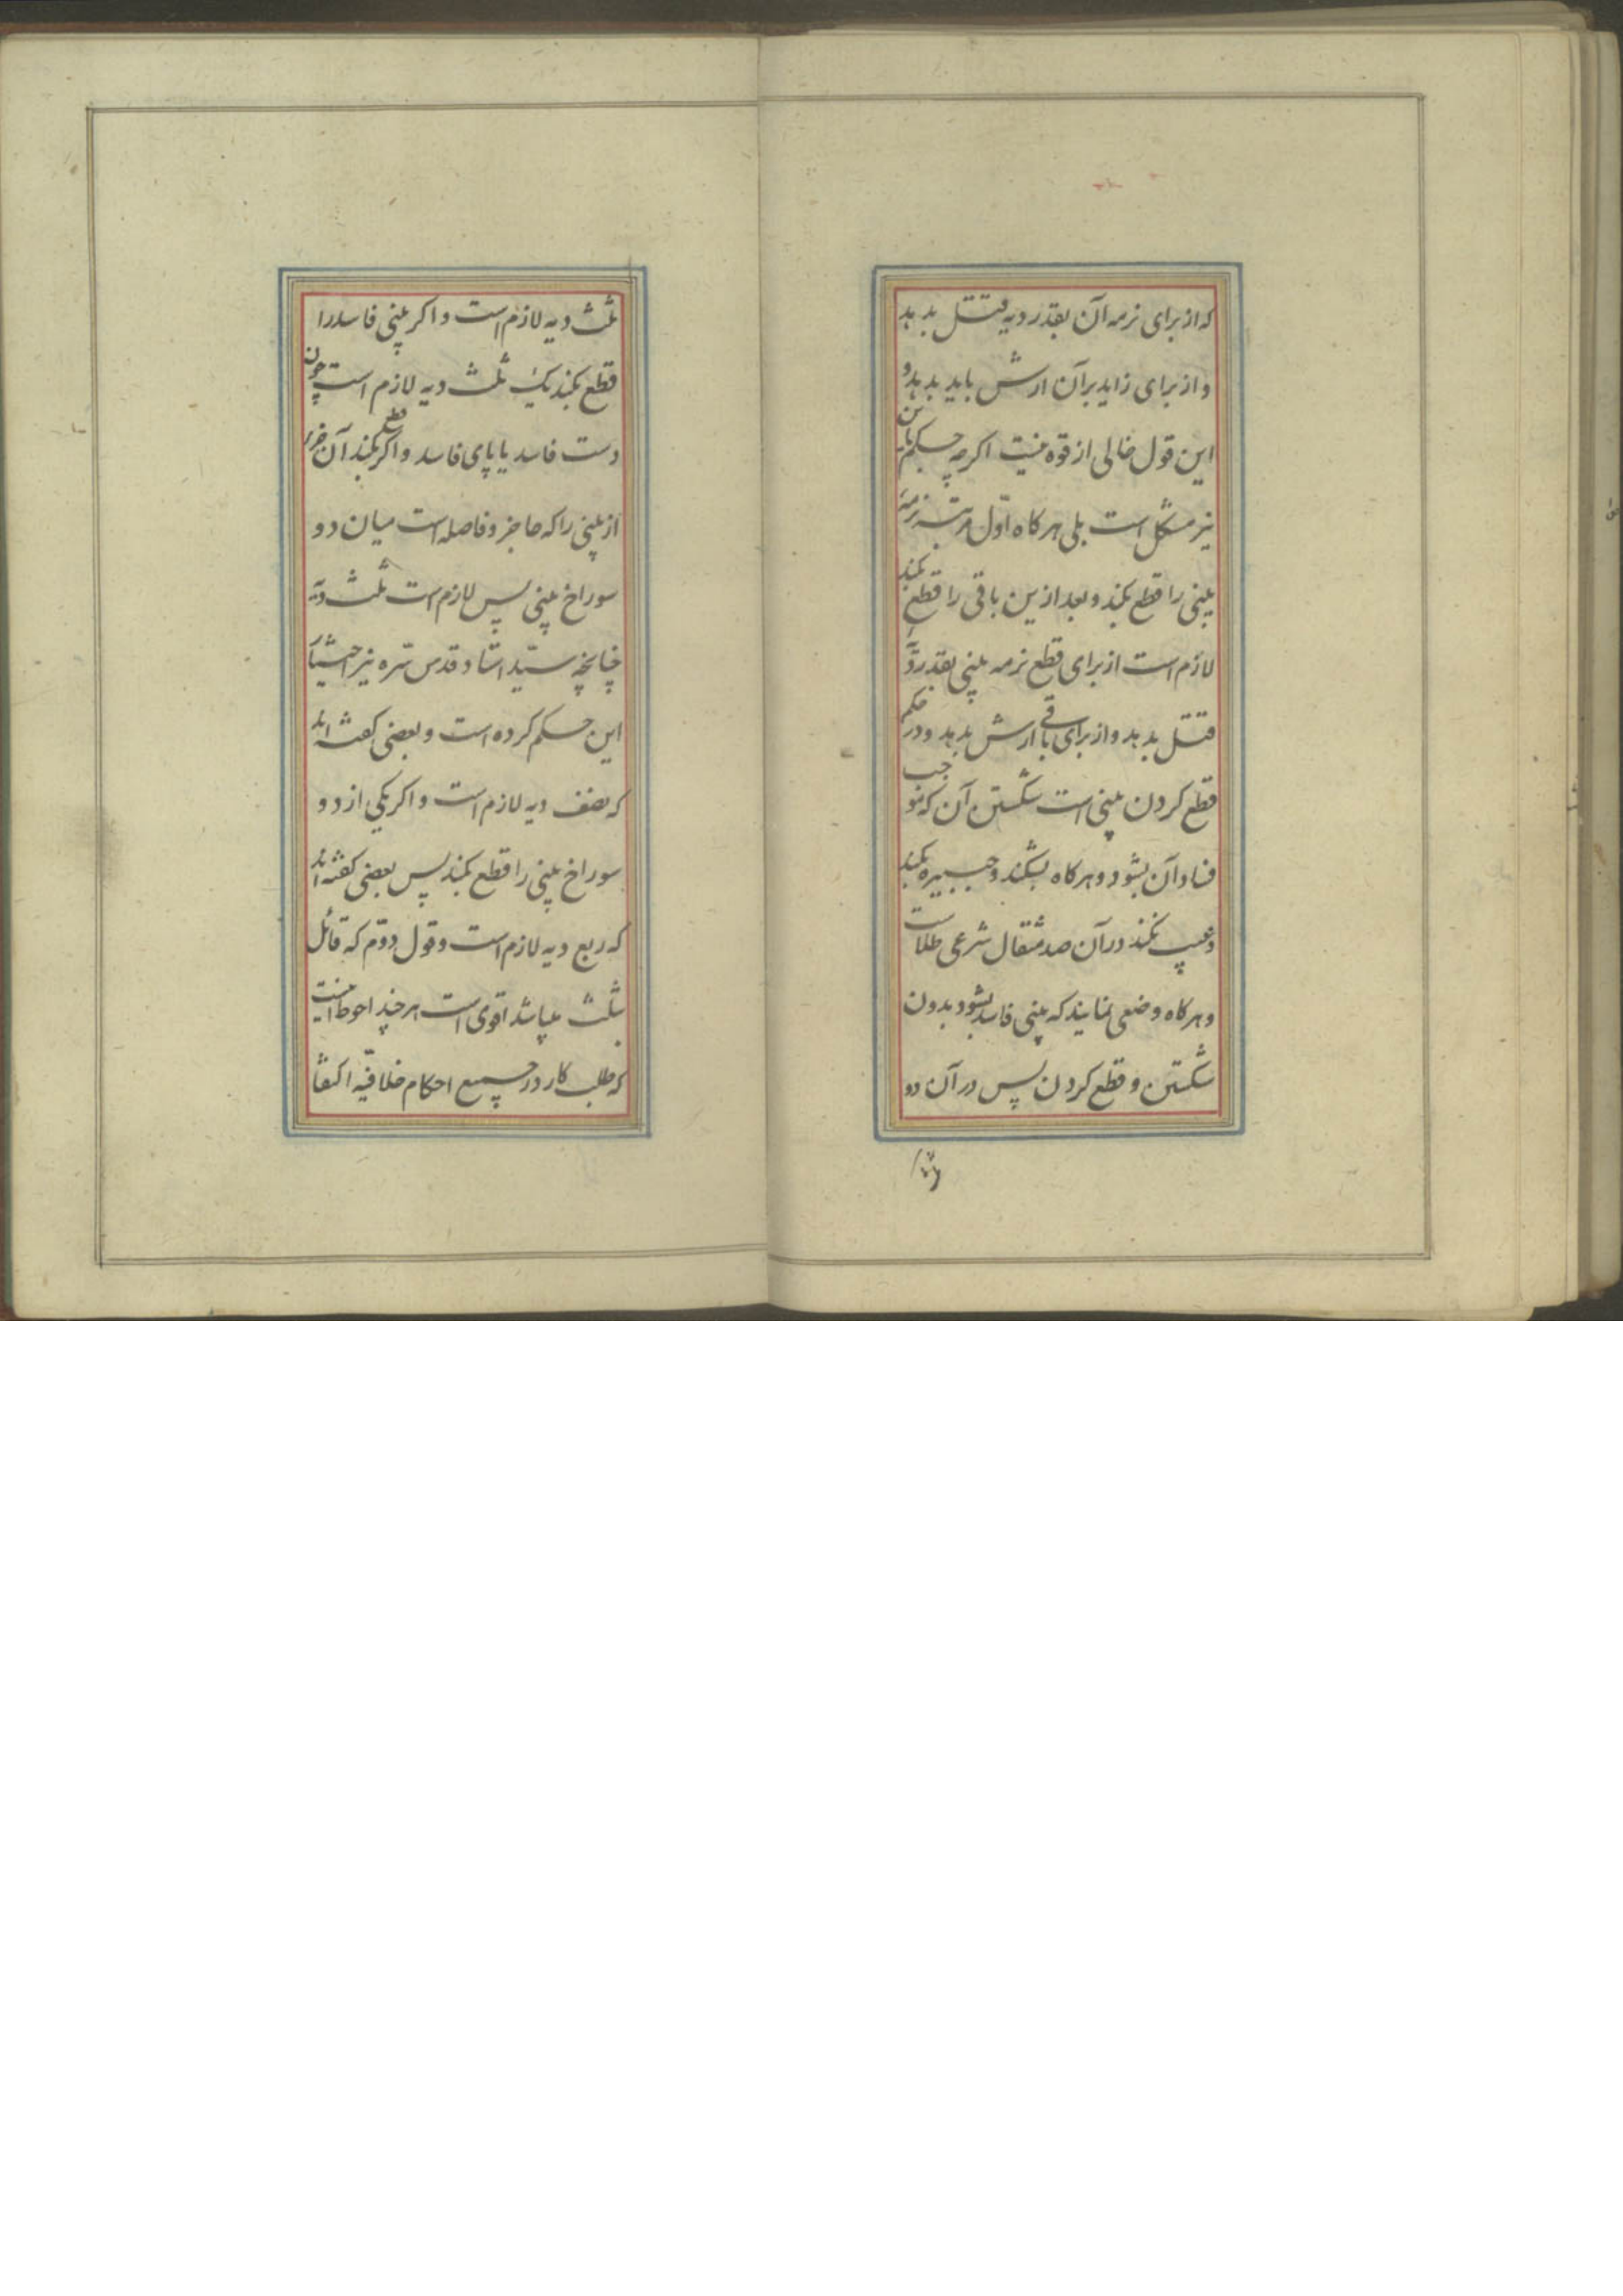 که از برای نرمه آن بقدر دیه قتل بدهد
و از برای زاید بر آن ارش باید بدهد و
این قول خالی از قوه نیست اگرچه حکم باین
نیز مشکل است بلی هرکاه اول مرتبه نرمهٔ
بینی را قطع بکند و بعد ازین باقی را قطع بکند
لازم است از برای قطع نرمه بینی بقدر دیهٔ
قتل بدهد و از برای باقی ارش بدهد و در حکم
قطع کردن بینی است شکستن آن که موجب
فساد آن بشود و هرکاه بشکند و جبیره بکند
و عیب نکند در آن صد مثقال شرعی طلاست
و هرکاه وضعی نمایند که بینی فاسد بشود بدون
شکستن و قطع کردن پس در آن دو
ثلث دیه لازم است و اکر بینی فاسد را
قطع بکند یک ثلث دیه لازم است چون
دست فاسد یا پای فاسد و اکر قطع بکند آن جزء
از بینی را که حاجز و فاصله است میان دو
سوراخ بینی پس لازم است ثلث دیه
چنانچه سید استاد قدس سره نیز اختیار
این حکم کرده است و بعضی کفته اند
که نصف دیه لازم است و اکر یکی از دو
سوراخ بینی را قطع بکند پس بعضی کفته اند
که ربع دیه لازم است و قول دوم که قائل
بثلث میباشد اقوی است هرچند احوط اینست
که طلب کار در جمیع احکام خلافیه اکتفا